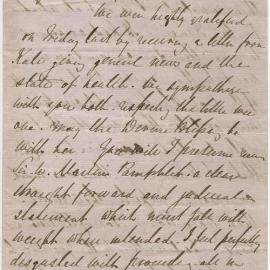 We were highly gratified
on Friday last by receiving a letter from
Kate giving general news and the
state of health. We sympathise
with you both respecting the little wee
one. May the Divine blessing be
with her. You will I presume
Sir W. Martin's Pamphlet. a clear
straight forward and judicial
statement which must fall with
weight where intended. I feel perfectly
disgusted with all in